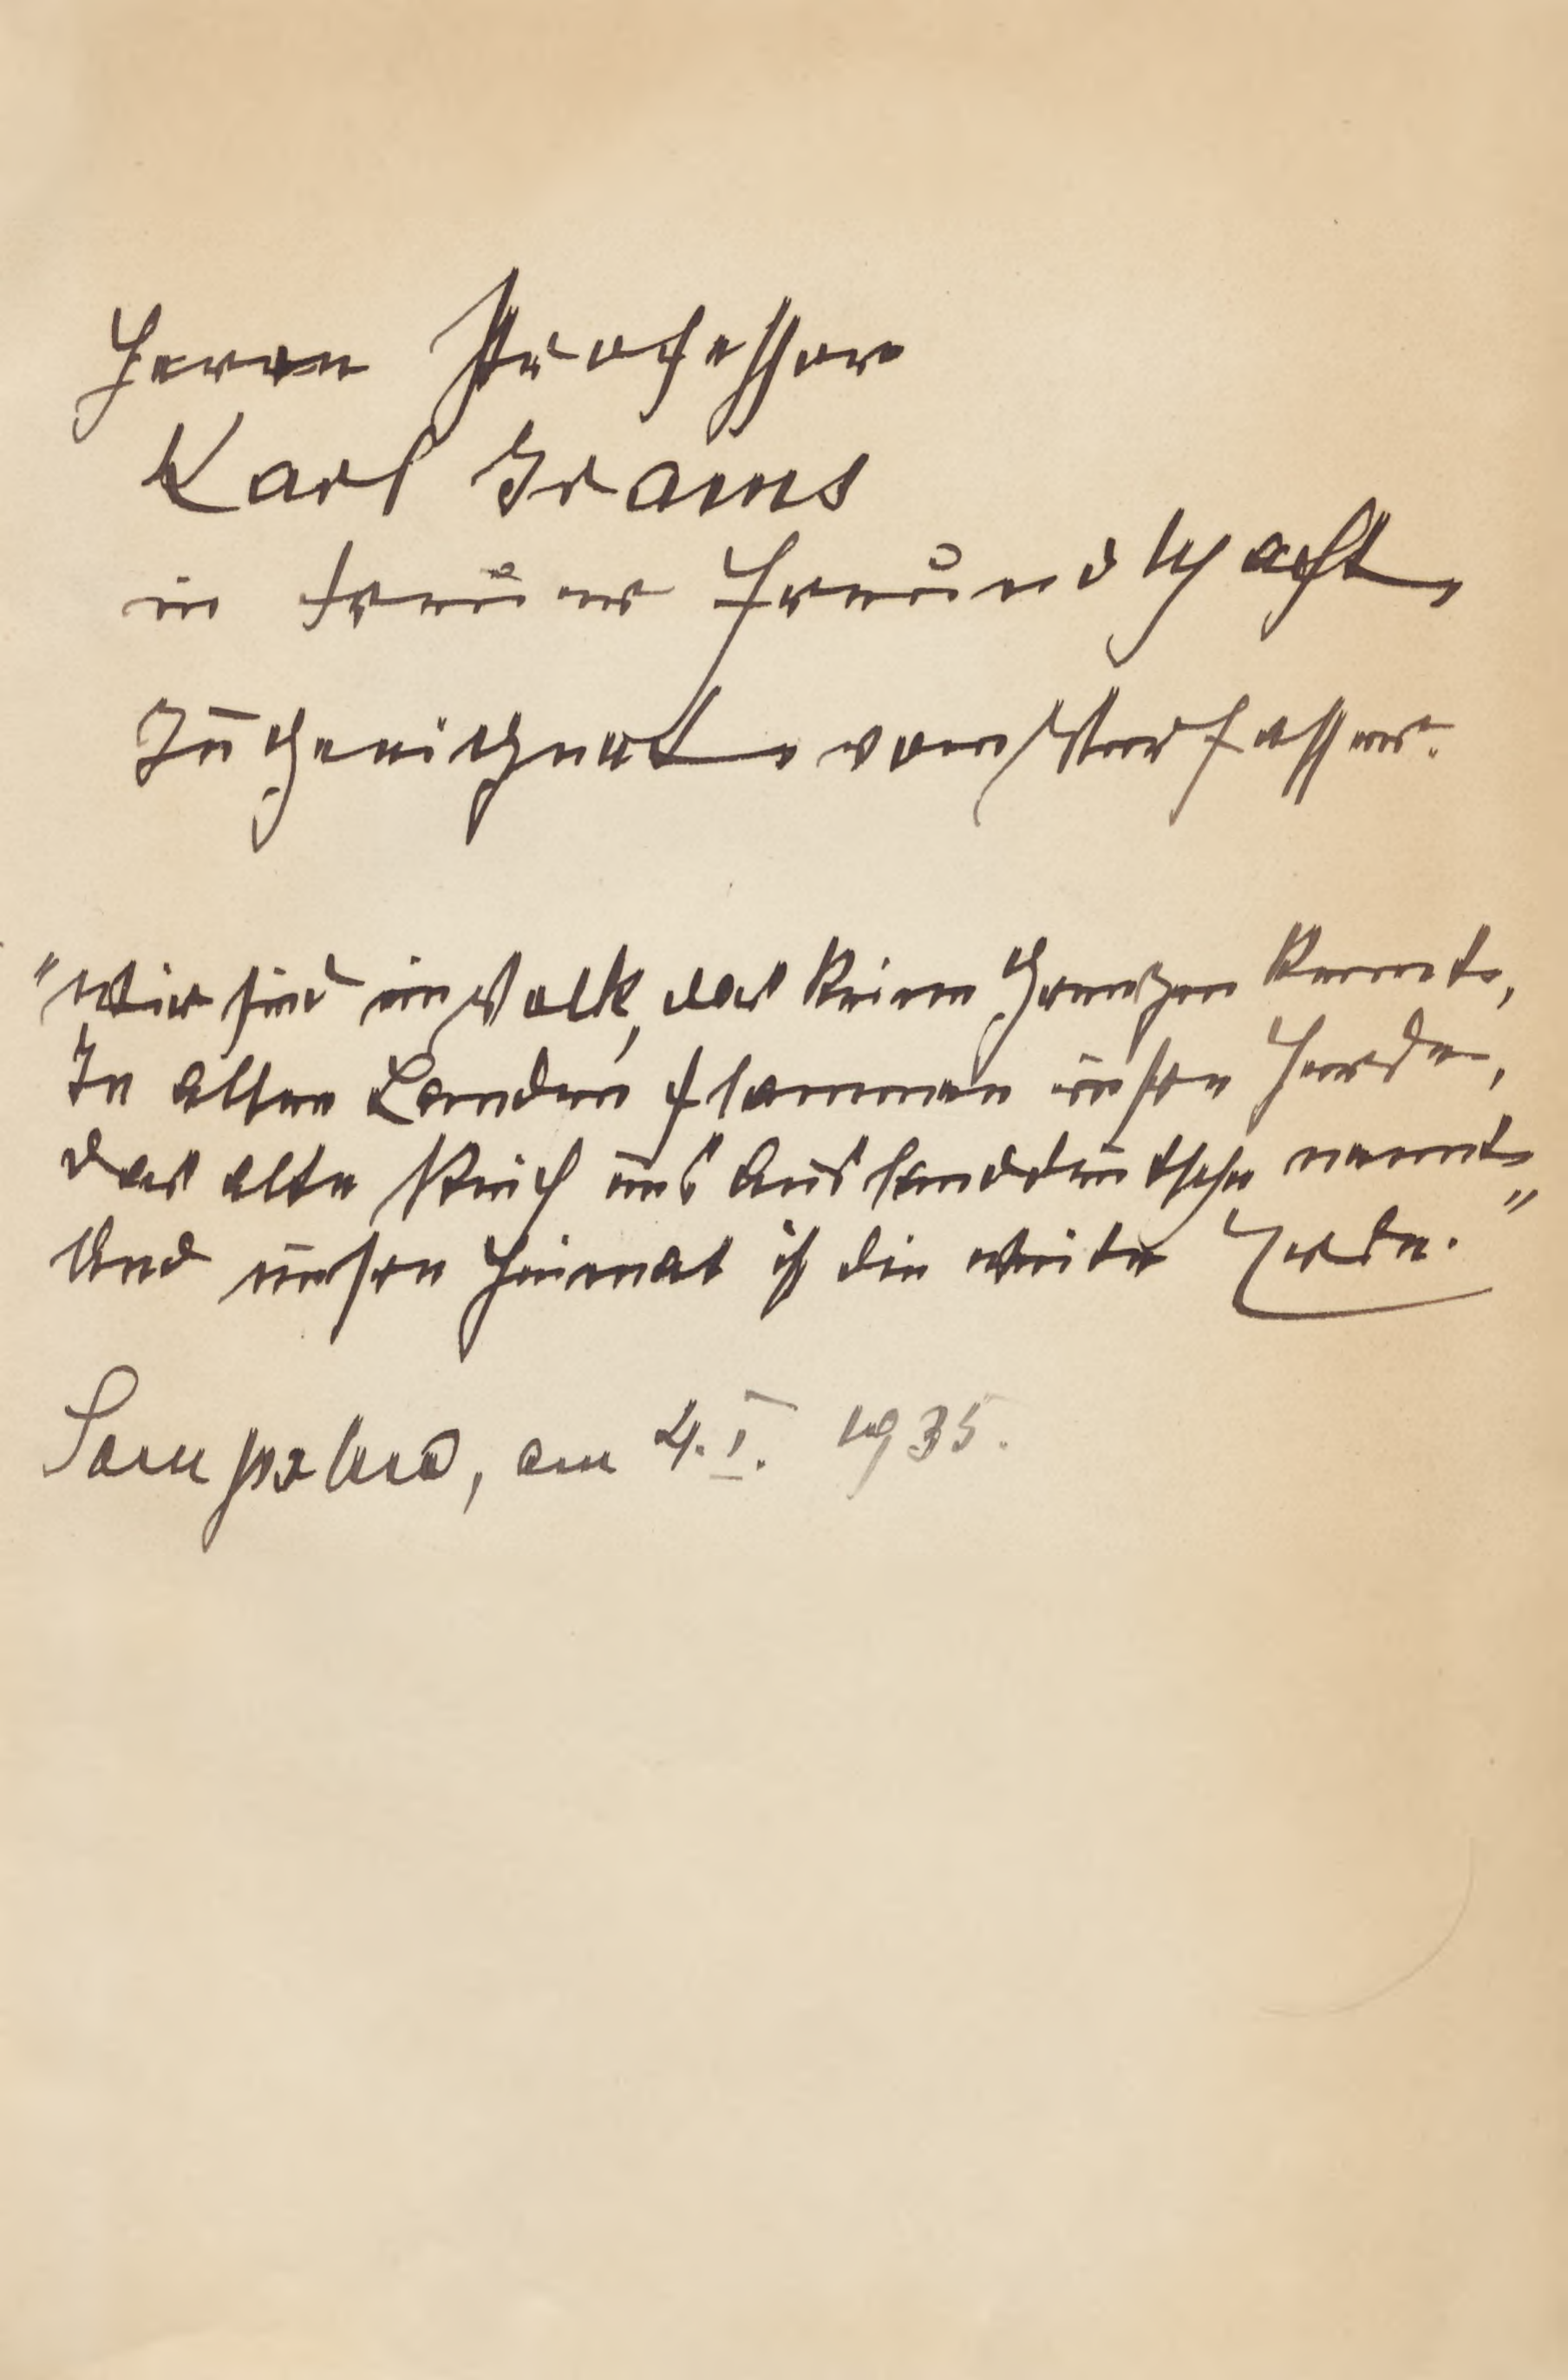 Herrn Professor
Karl Grams
in treuer Freundschaft
Zugeeignet vom Verfasser.
"Wir sind ein Volk, das keine Grenzen kennt,
In allen Landen flammen unsre Herde,
das alte Reich uns Auslanddeutsche nennt
Und unsre Heimat ist die weite Erde."
am 4. I. 1935.